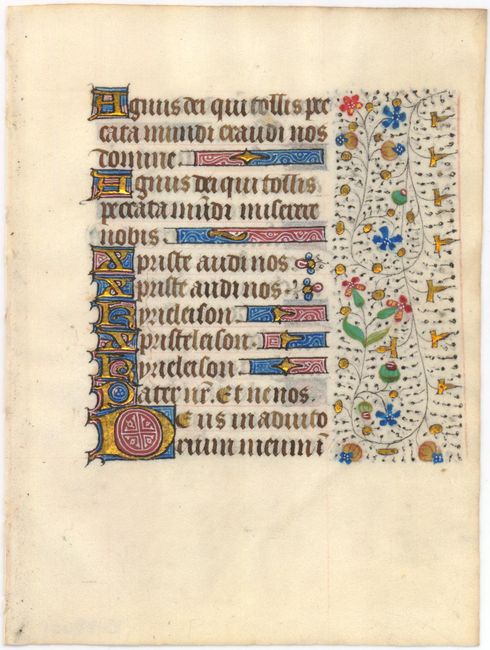 Agnus dei qui tollis pec
cata mundi exaudi nos
domine.
Agnus dei qui tollis
peccata mūdi miserere
nobis.
Xpriste audi nos.
Xpriste audi nos.
Kyrieleison.
Xpristeleison.
Kyrieleison.
Pater nr̄. Et ne nos.
Deus in adiuto
rium meum ī